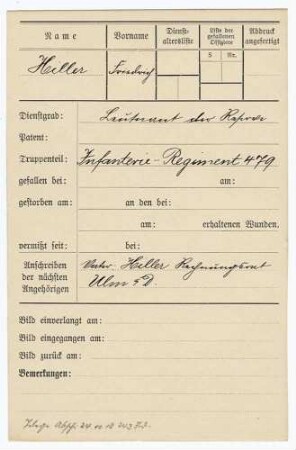 Name Vorname Dienst-altersliste Liste der gefallenen Offiziere Abdruck angefertigt
S Nr.
Heller Friedrich
Dienstgrad: Leutnant der Reserve
Patent:
Truppenteil: Infanterie-Regiment 479
gefallen bei: am:
gestorben am: an den bei:
am: erhaltenen Wunden.
vermißt seit: bei:
Anschreiben der nächsten Angehörigen
Vater: Heller Rechnungsrat
Ulm a D.
Bild einverlangt am:
Bild eingegangen am:
Bild zurück am:
Bemerkungen: